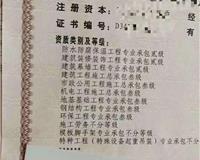 注册资本:
经
证书编号: D34
有
资质类别及等级:
防水防腐保温工程专业承包贰级
建筑装修装饰工程专业承包贰级
建筑幕墙工程专业承包贰级
建筑工程施工总承包叁级
机电工程施工总承包叁级
地基基础工程专业承包叁级
钢结构工程专业承包叁级
环保工程专业承包叁级
施工劳务不分等级
模板脚手架专业承包不分等级
特种工程(特殊设备起重吊装)专业承包不分等